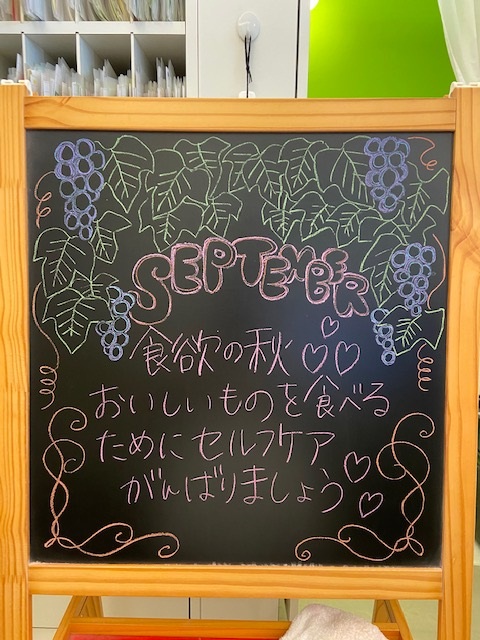 SEPTEMBER
食欲の秋♡♡♡
おいしいものを食べる
ためにセルフケア
がんばりましょう♡♡